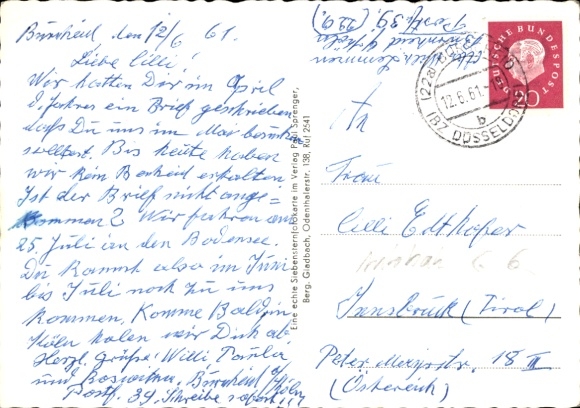 Burscheid den 12/6 61.
Liebe Cilli!
Wir hatten Dir im April
d. Jahres ein Brief geschrieben
daß Du uns im Mai besuchen
solltest. Bis heute haben
wir kein Bescheid erhalten
Ist der Brief nicht ange=
kommen? Wir fahren am
25 Juli an den Bodensee.
Du kannst also im Juni
bis Juli noch zu uns
kommen, Komme Bald, in
Köln holen wir Dich ab.
Herzl. Grüße. Willi Paula
und Burscheid b/Köln
Postf. 39. Schreibe sofort!!
Eine echte Siebensternfotokarte im Verlag Paul Sprenger,
Berg. Gladbach, Odenthalerstr. 138, Ruf 2541
Burscheid
Postf. 39. (22a)
DEUTSCHE BUNDESPOST
20
(22a) 
12.6.61
b
(BZ DÜSSELDORF)
An
Frau
Cilli Edthofer
Innsbruck (Tirol)
Peter Mayrstr. 18 II
(Östereich)